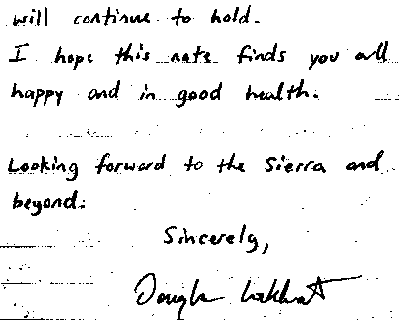 will continue to hold.
I hope this note finds you all
happy and in good health.
Looking forward to the Sierra and
beyond.
Sincerely,